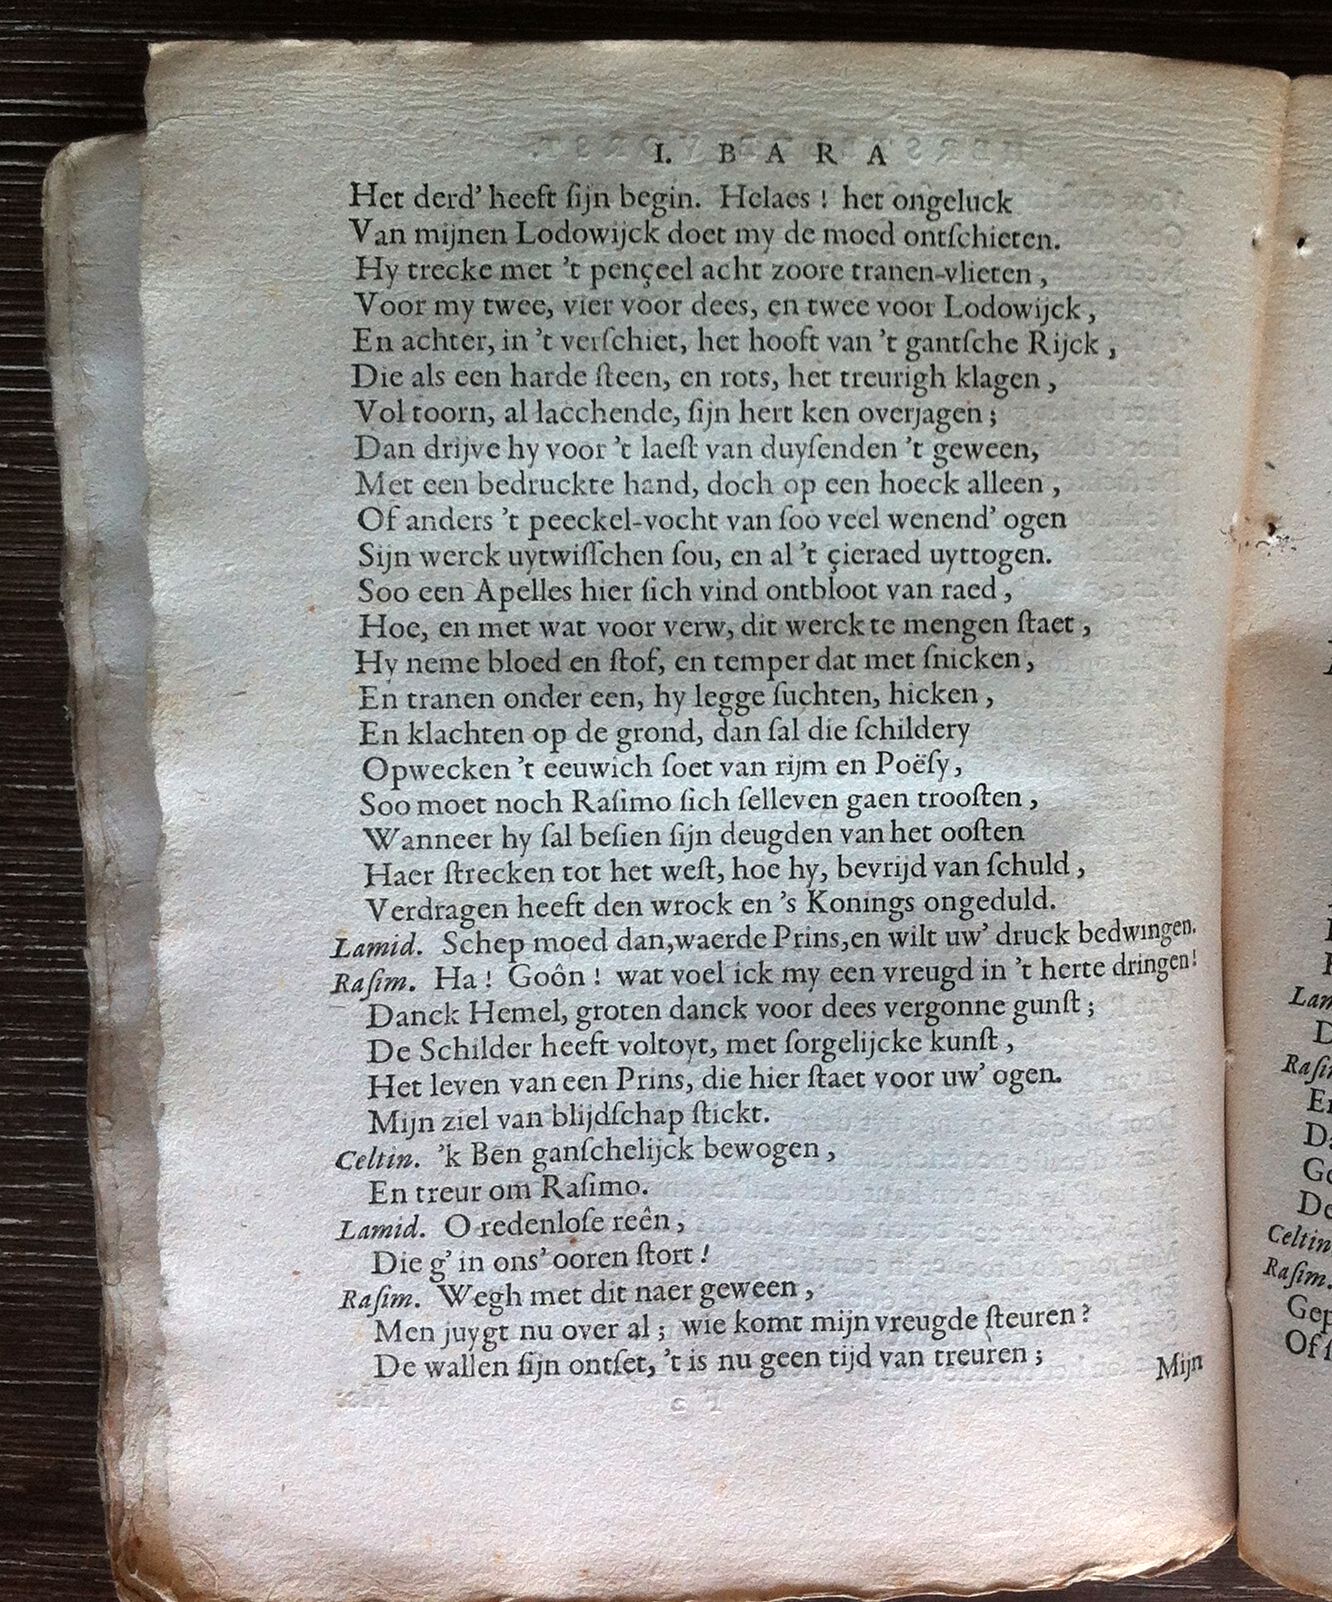 I. BARA
Het derd' heeft ſijn begin. Helaes! het ongeluck
Van mijnen Lodowijck doet my de moed ontſchieten.
Hy trecke met 't pençeel acht zoore tranen-vlieten,
Voor my twee, vier voor dees, en twee voor Lodowijck,
En achter, in 't verſchiet, het hooft van 't gantſche Rijck,
Die als een harde ſteen, en rots, het treurigh klagen,
Vol toorn, al lacchende, ſijn hert ken overjagen;
Dan drijve hy voor 't laeſt van duyſenden 't geween,
Met een bedruckte hand, doch op een hoeck alleen,
Of anders 't peeckel-vocht van ſoo veel wenend' ogen
Sijn werck uytwiſſchen ſou, en al 't çieraed uyttogen.
Soo een Apelles hier ſich vind ontbloot van raed,
Hoe, en met wat voor verw, dit werck te mengen ſtaet,
Hy neme bloed en ſtof, en temper dat met ſnicken,
En tranen onder een, hy legge ſuchten, hicken,
En klachten op de grond, dan ſal die ſchildery
Opwecken 't eeuwich ſoet van rijm en Poëſy,
Soo moet noch Raſimo ſich ſelleven gaen trooſten,
Wanneer hy ſal beſien ſijn deugden van het ooſten
Haer ſtrecken tot het weſt, hoe hy, bevrijd van ſchuld,
Verdragen heeft den wrock en 's Konings ongeduld.
Lamid. Schep moed dan, waerde Prins, en wilt uw' druck bedwingen.
Raſim. Ha! Goôn! wat voel ick my een vreugd in 't herte dringen!
Danck Hemel, groten danck voor dees vergonne gunſt;
De Schilder heeft voltoyt, met ſorgelijcke kunſt,
Het leven van een Prins, die hier ſtaet voor uw' ogen.
Mijn ziel van blijdſchap ſtickt.
Celtin. 'k Ben ganſchelijck bewogen,
En treur om Raſimo.
Lamid. O redenloſe reên,
Die g' in ons' ooren ſtort!
Raſim. Wegh met dit naer geween,
Men juygt nu over al; wie komt mijn vreugde ſteuren?
De wallen ſijn ontſet, 't is nu geen tijd van treuren;
Mijn
Lam
D
Raſi
En
Da
Ge
De
Celtin
Raſim.
Gep
Of ſ